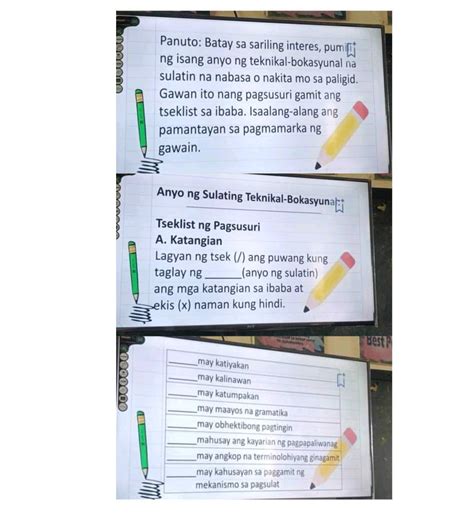 Panuto: Batay sa sariling interes, pumili
ng isang anyo ng teknikal-bokasyunal na
sulatin na nabasa o nakita mo sa paligid.
Gawan ito nang pagsusuri gamit ang
tseklist sa ibaba. Isaalang-alang ang
pamantayan sa pagmamarka ng
gawain.
Anyo ng Sulating Teknikal-Bokasyunal:
Tseklist ng Pagsusuri
A. Katangian
Lagyan ng tsek (/) ang puwang kung
taglay ng ______(anyo ng sulatin)
ang mga katangian sa ibaba at
ekis (x) naman kung hindi.
Best
______may katiyakan
______may kalinawan
______may katumpakan
______may maayos na gramatika
______may obhektibong pagtingin
______mahusay ang kayarian ng pagpapaliwanag
______may angkop na terminolohiyang ginagamit
______may kahusayan sa paggamit ng
mekanismo sa pagsulat